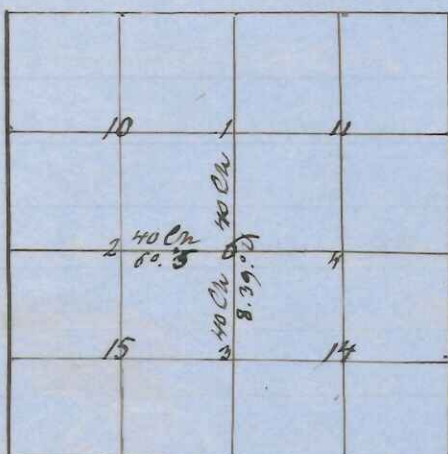 10 1 11
40 Ch
2 40 Ch 4
60. 5
40 Ch
8.39.
15 3 14